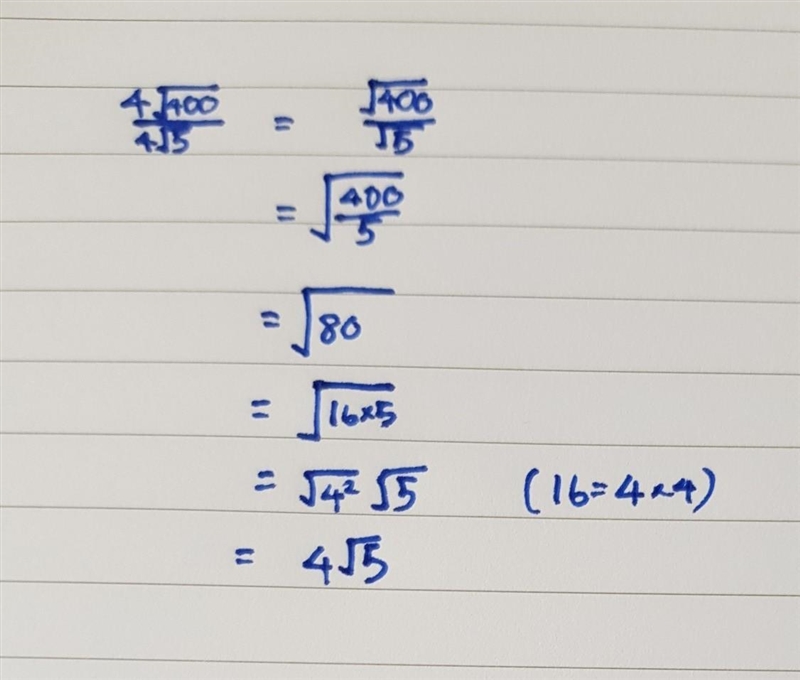 4√400/4√5 = √400/√5
= √(400/5)
= √80
= √(16×5)
= √4² √5 (16=4×4)
= 4√5